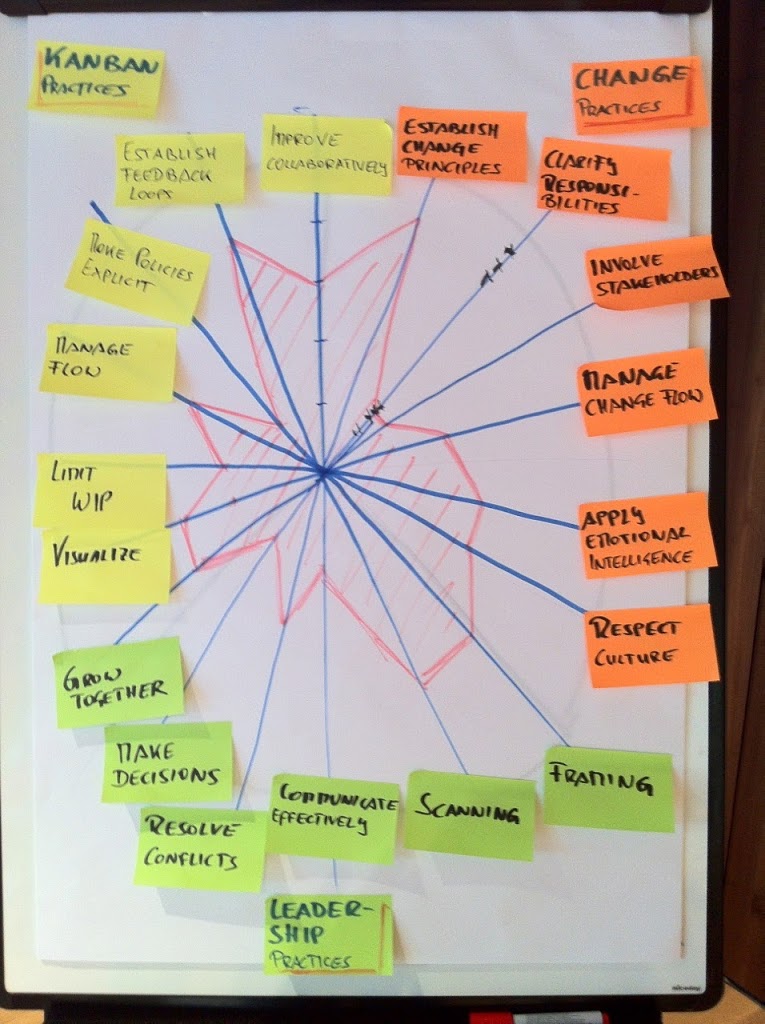 KANBAN
PRACTICES
CHANGE
PRACTICES
ESTABLISH
FEEDBACK
LOOPS
IMPROVE
COLLABORATIVELY
ESTABLISH
CHANGE
PRINCIPLES
CLARIFY
RESPONSI-
BILITIES
MAKE POLICIES
EXPLICIT
INVOLVE
STAKEHOLDERS
MANAGE
FLOW
MANAGE
CHANGE FLOW
LIMIT
WIP
VISUALIZE
APPLY
EMOTIONAL
INTELLIGENCE
RESPECT
CULTURE
GROW
TOGETHER
MAKE
DECISIONS
RESOLVE
CONFLICTS
COMMUNICATE
EFFECTIVELY
SCANNING
FRAMING
LEADER-
SHIP
PRACTICES